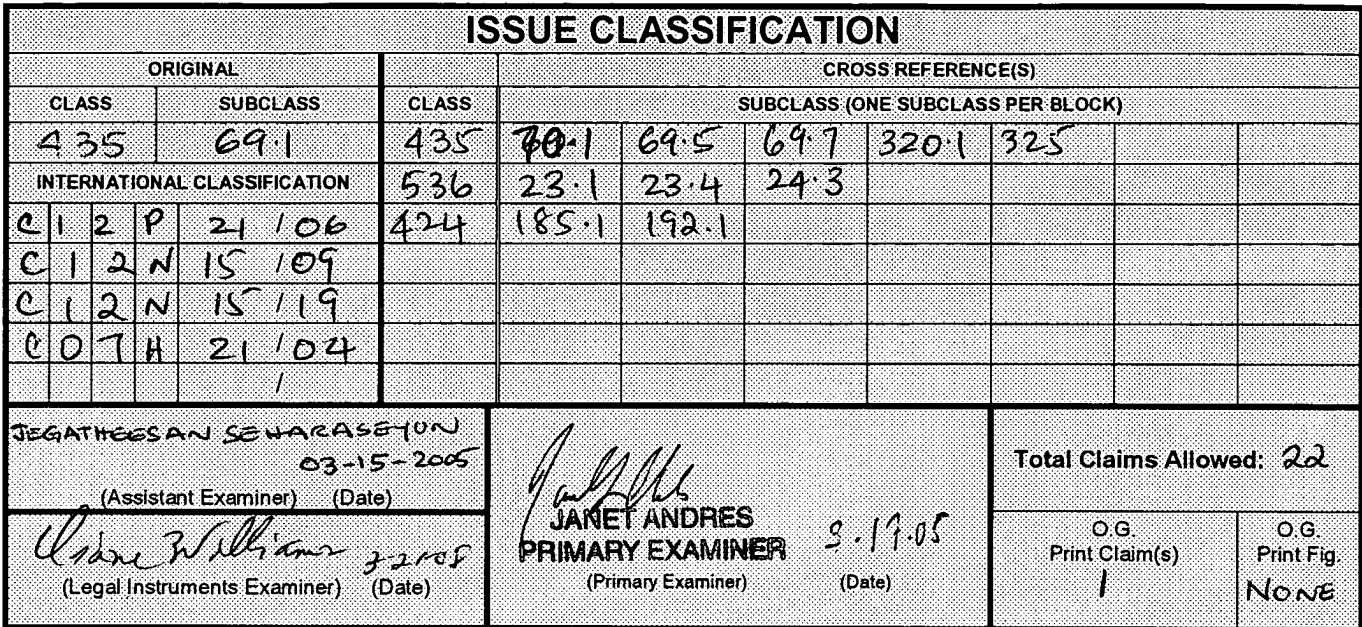 ISSUE CLASSIFICATION
ORIGINAL CROSS REFERENCE(S)
CLASS SUBCLASS CLASS SUBCLASS (ONE SUBCLASS PER BLOCK)
435 69.1 435 70.1 69.5 69.7 320.1 325
INTERNATIONAL CLASSIFICATION 536 23.1 23.4 24.3
C 1 2 P 21 / 06 424 185.1 192.1
C 1 2 N 15 / 09
C 1 2 N 15 / 19
C 0 7 H 21 / 04
/
JEGATHEESAN SEHARASEYON
03-15-2005
(Assistant Examiner) (Date)
Williams
(Legal Instruments Examiner) (Date)
JANET ANDRES
PRIMARY EXAMINER 3.17.05
(Primary Examiner) (Date)
Total Claims Allowed: 22
O.G. Print Claim(s)
1
O.G. Print Fig.
NONE